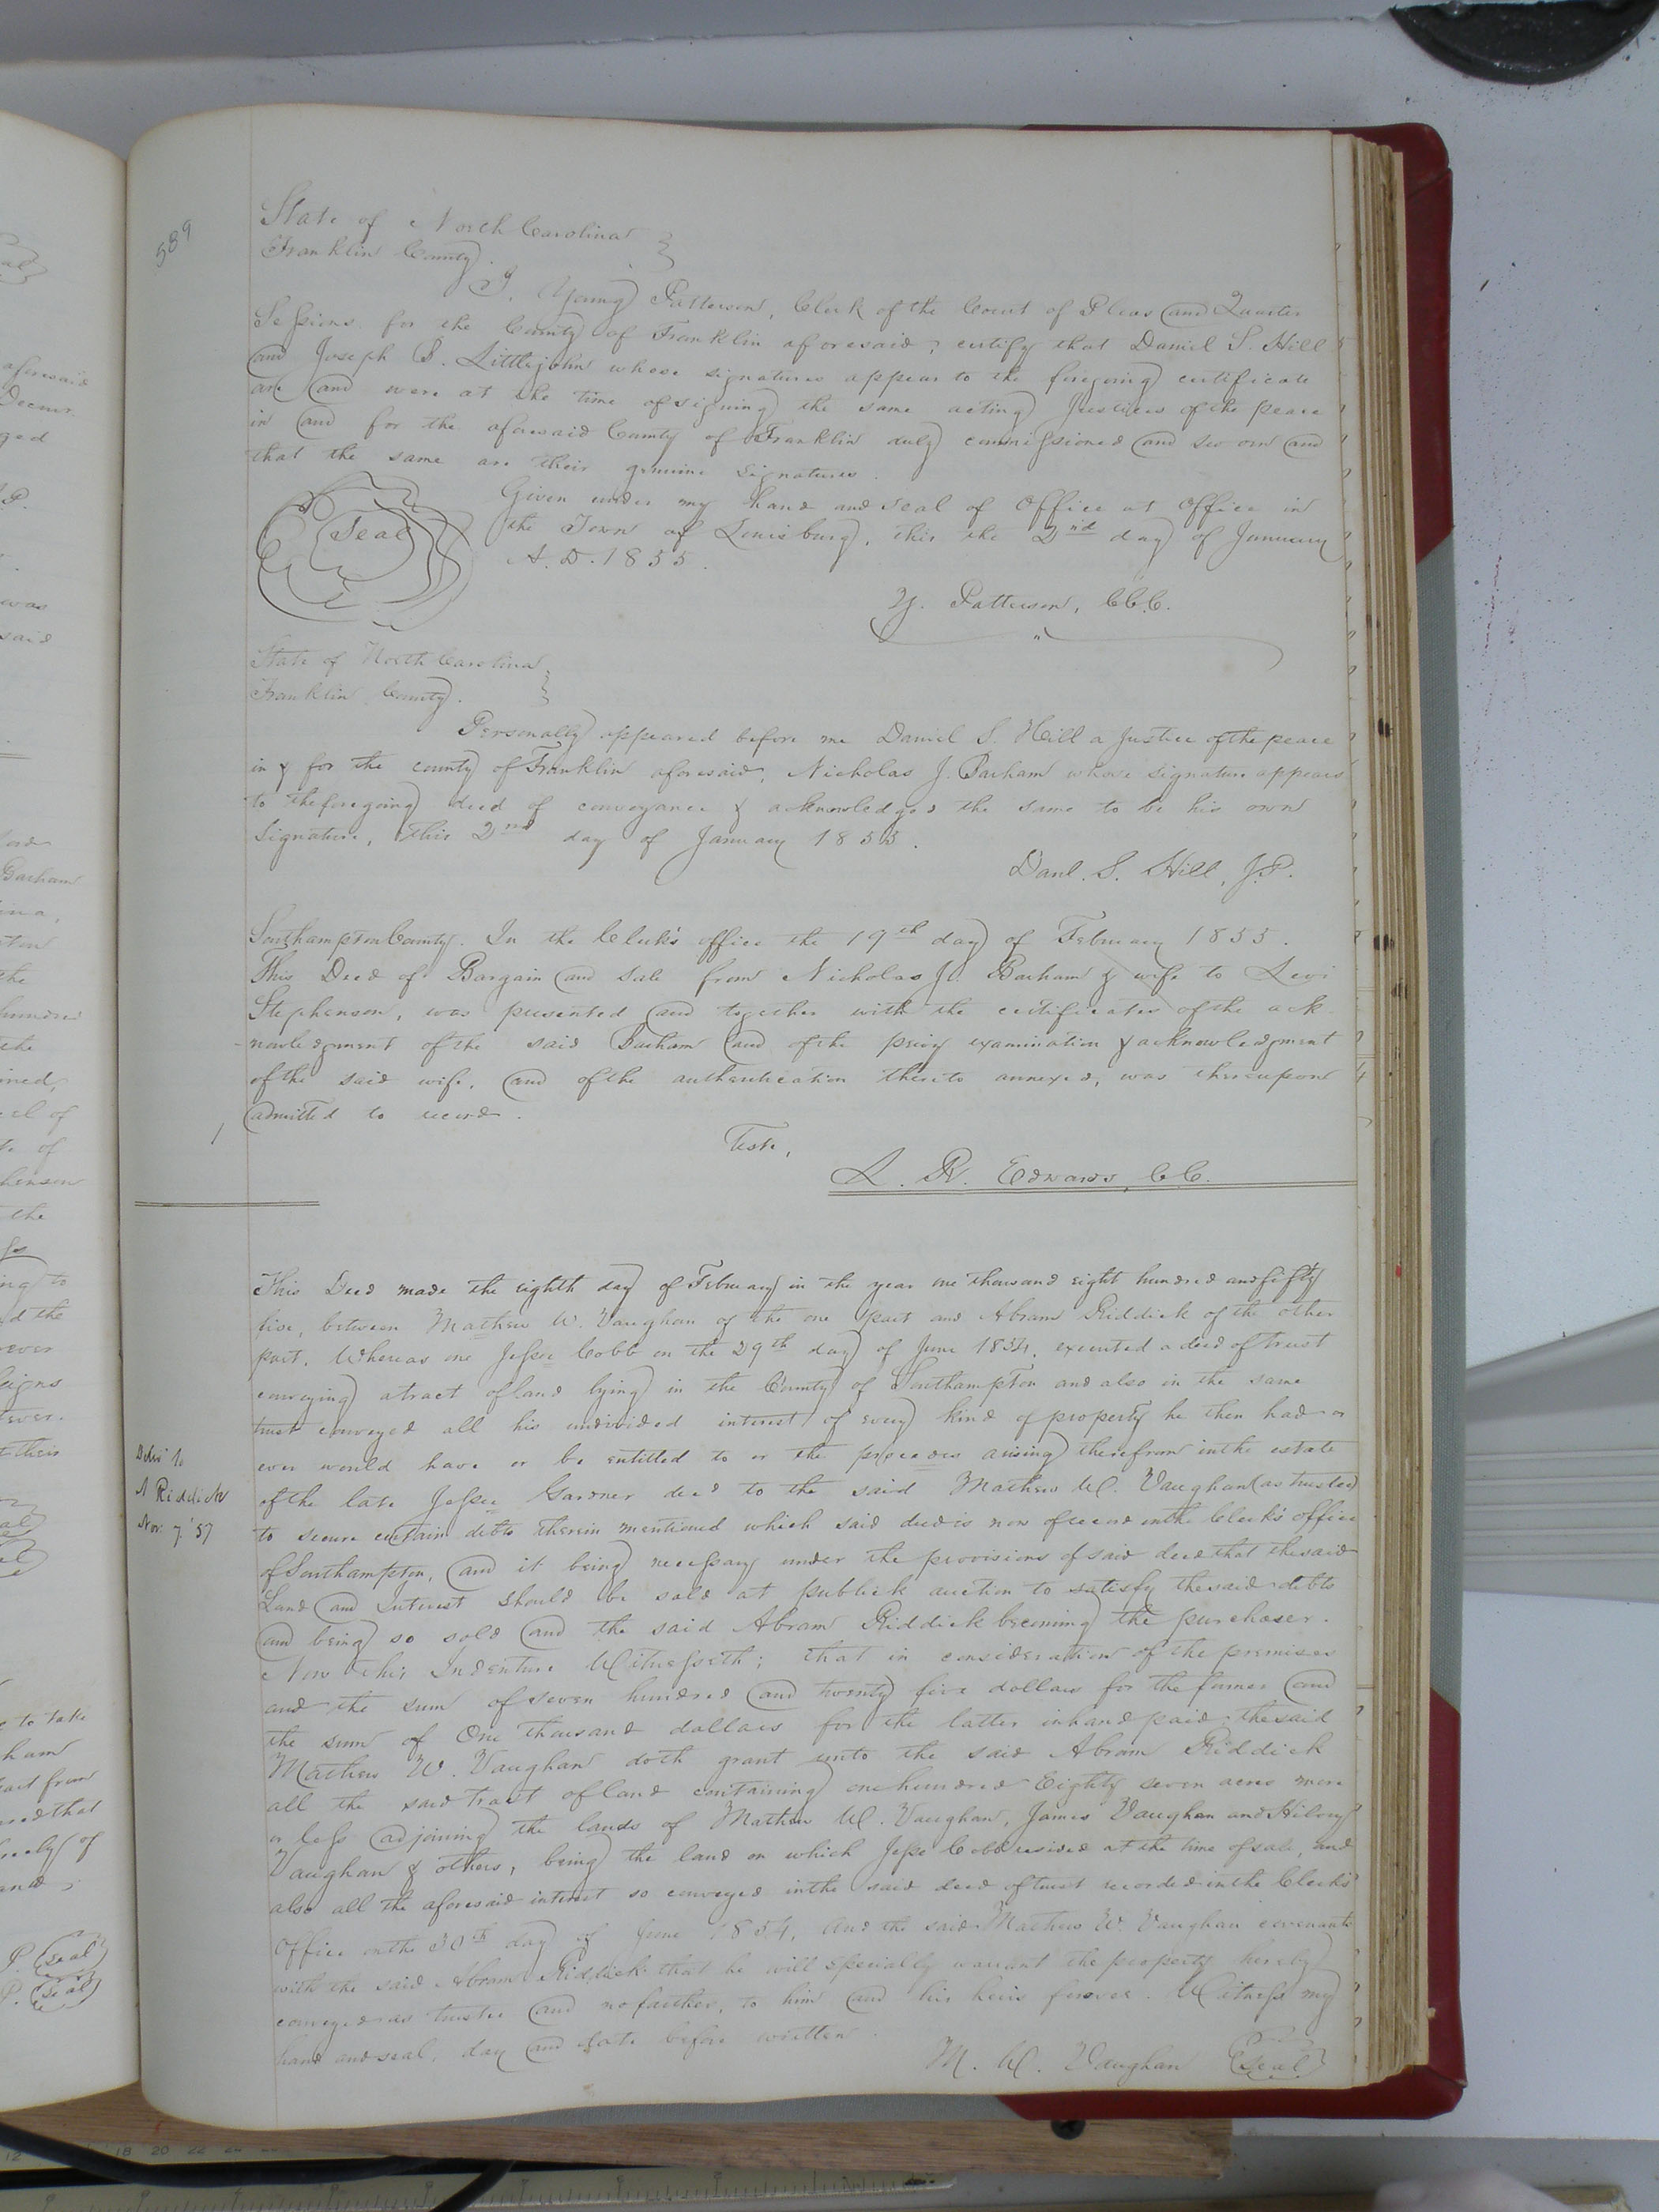 589
State of North Carolina
Franklin County.
I, Young Patterson, Clerk of the Court of Pleas and Quarter
Sessions for the County of Franklin aforesaid, certify that Daniel S. Hill
and Joseph B. Littlejohn whose signatures appear to the foregoing certificate
are and were at the time of signing the same acting Justices of the peace
in and for the aforesaid County of Franklin duly commissioned and sworn and
that the same are their genuine signatures.
Given under my hand and seal of Office at Office in
Seal
the Town of Louisburg, this the 2nd day of January
A.D. 1855.
Y. Patterson, C.C.C.
State of North Carolina
Franklin County.
Personally appeared before me Daniel S. Hill a Justice of the peace
in & for the county of Franklin aforesaid, Nicholas J. Barham whose signature appears
to the foregoing deed of conveyance & acknowledges the same to be his own
signature, this 2nd day of January 1855.
Danl. S. Hill, J.P.
Southampton County. In the Clerk's office the 19th day of February 1855.
This Deed of Bargain and sale from Nicholas J. Barham & wife to Levi
Stephenson, was presented and together with the certificates of the ack
-nowledgment of the said Barham and of the privy examination & acknowledgment
of the said wife, and of the authentication thereto annexed, was thereupon
admitted to record.
Teste,
L. R. Edwards, C.C.
This Deed made the eighth day of February in the year one thousand eight hundred and fifty
five, between Mathew W. Vaughan of the one part and Abram Riddick of the other
part. Whereas one Jesse Cobb on the 29th day of June 1854, executed a deed of trust
conveying a tract of land lying in the County of Southampton and also in the same
trust conveyed all his undivided interest of every kind of property he then had or
ever would have or be entitled to or the procedes arising therefrom in the estate
of the late Jesse Gardner decd to the said Mathew W. Vaughan (as trustee)
to secure certain debts therein mentioned which said deed is now of record in the Clerk's office
of Southampton, and it being necessary under the provisions of said deed that the said
Land and Interest should be sold at publick auction to satisfy the said debts
and being so sold and the said Abram Riddick becoming the purchaser.
Now this Indenture Witnesseth; that in consideration of the premises
and the sum of seven hundred and twenty five dollars for the former and
the sum of One thousand dollars for the latter in hand paid; the said
Mathew W. Vaughan doth grant unto the said Abram Riddick
all the said tract of land containing one hundred Eighty seven acres more
or less adjoining the lands of Mathew W. Vaughan, James Vaughan and Hilory
Vaughan & others, being the land on which Jesse Cobb resided at the time of sale, and
also all the aforesaid interest so conveyed in the said deed of trust recorded in the Clerk's
Office on the 30th day of June 1854, And the said Mathew W. Vaughan covenants
with the said Abram Riddick that he will specially warrant the property hereby
conveyed as trustee and no farther, to him and his heirs forever. Witness my
hand and seal, day and date before written.
M. W. Vaughan (Seal)
Deliv'd to
A Riddick
Nov. 7 '57